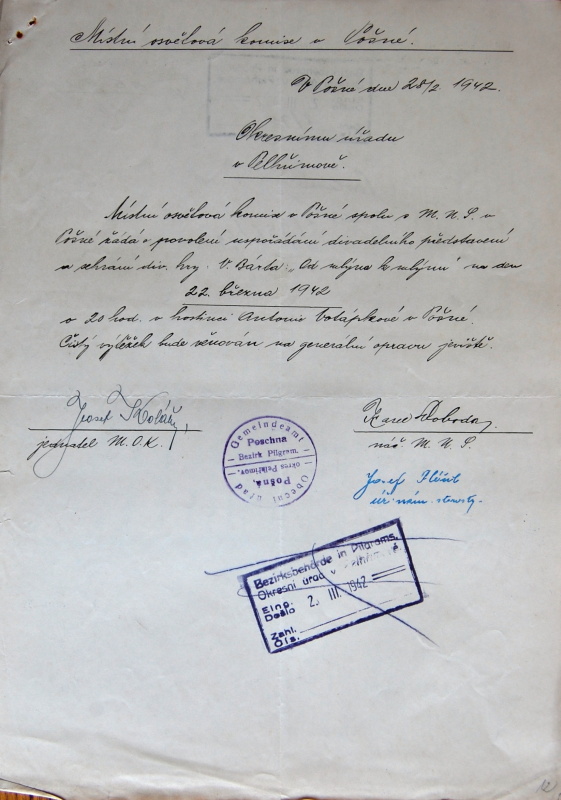 Místní osvětová komise v Pošné.
V Pošné dne 28/2 1942.
Okresnímu úřadu
v Pelhřimově.
Místní osvětová komise v Pošné spolu s M. N. S. v
Pošné žádá o povolení uspořádání divadelního představení
a sehrání div. hry. V. Bárta: „Od mlýna k mlýnu" na den
22. března 1942
o 20 hod. v hostinci Antonie Votápkové v Pošné.
Čistý výtěžek bude věnován na generální opravu jeviště.
Josef Kolář,
jednatel M.O.K.
Karel Svoboda,
náč. M. N. S.
Josef
úř. nám. starosty.
Gemeindeamt
Poschna
Bezirk Pilgram.
okres Pelhřimov.
Pošná.
Obecní úřad
Bezirksbehörde in Pilgrams.
Okresní úřad v
Eing.
Došlo
2. III. 1942
Zahl.
Čís.
12